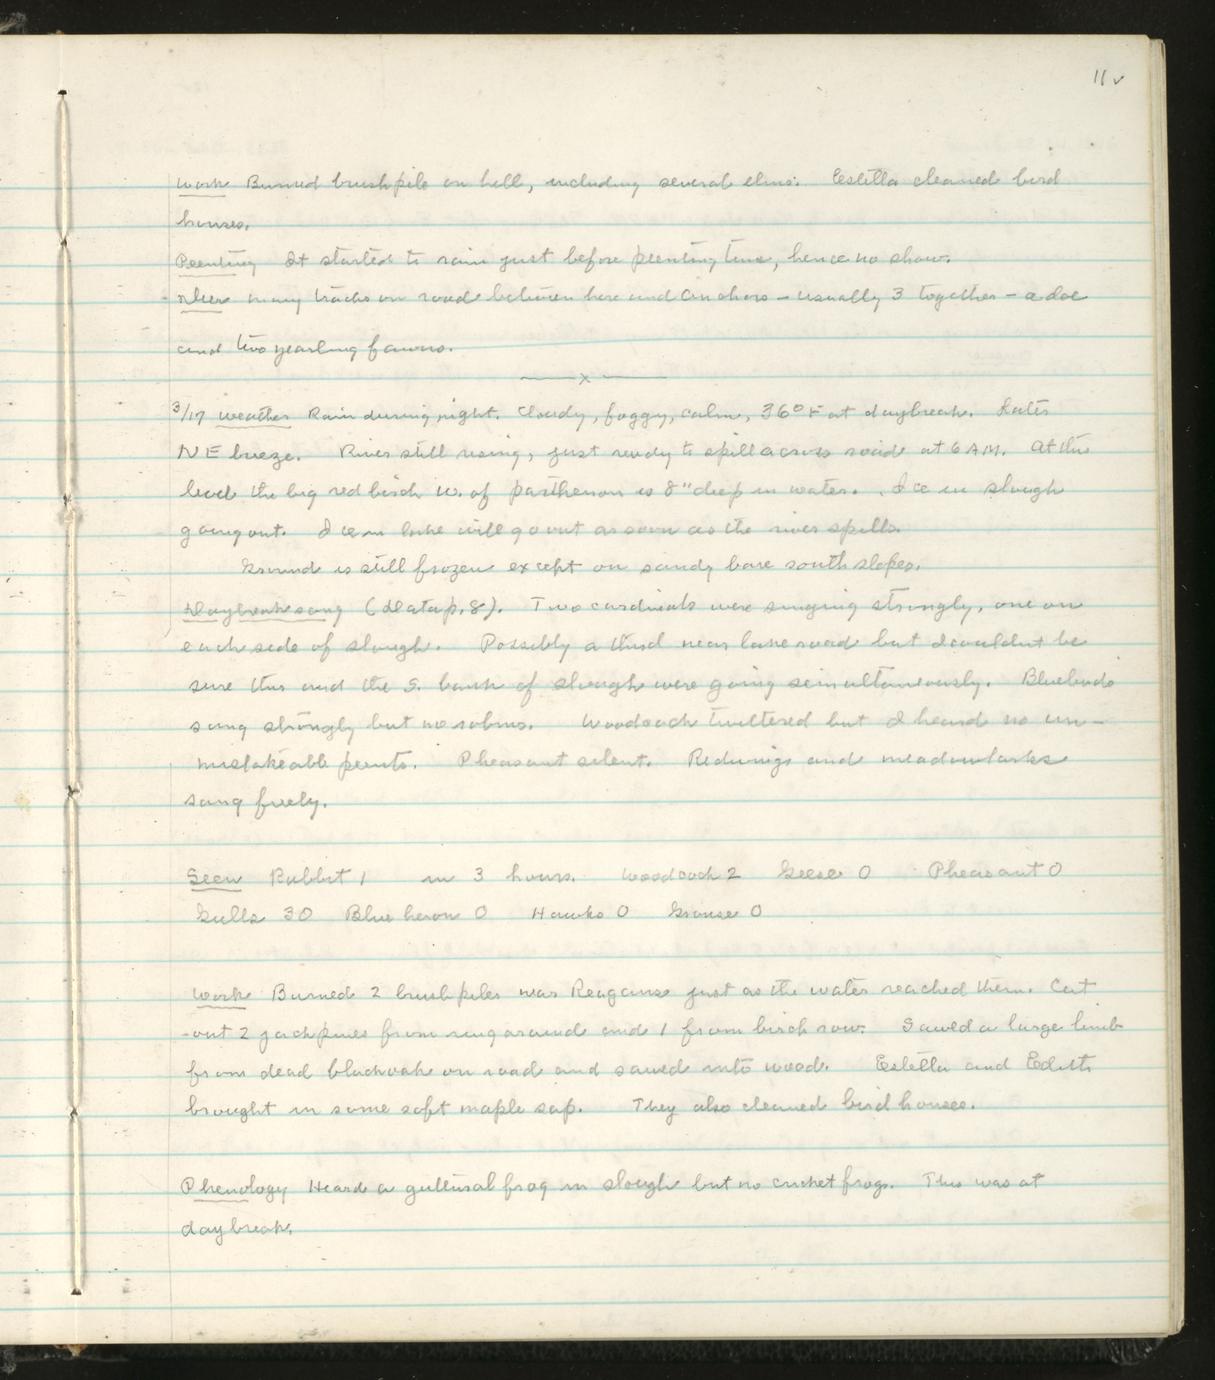 11 v
Work Burned brushpile on hill, including several elms. Estella cleaned bird
houses.
Peenting It started to rain just before peenting time, hence no show.
Deer many tracks on road between here and Anchors - usually 3 together - a doe
and two yearling fawns.
x
3/17 Weather Rain during night. Cloudy, foggy, calm, 36° F at daybreak. Later
NE breeze. River still rising, just ready to spill across road at 6 AM. At this
level the big red birch W. of parthenon is 8" deep in water. Ice in slough
going out. Ice in lake will go out as soon as the river spills.
Ground is still frozen except on sandy bare south slopes.
Daybreak song (data p. 8). Two cardinals were singing strongly, one on
each side of slough. Possibly a third near lake road but I couldnt be
sure this and the S. bank of slough were going simultaneously. Bluebirds
sang strongly but no robins. Woodcock twittered but I heard no un-
mistakeable peents. Pheasant silent. Redwings and meadowlarks
sang freely.
Seen Rabbit 1 in 3 hours. Woodcock 2 Geese 0 Pheasant 0
Gulls 30 Blue heron 0 Hawks 0 Grouse 0
Work Burned 2 brushpiles near Reagans just as the water reached them. Cut
out 2 jackpines from ring around and 1 from birch row. Sawed a large limb
from dead blackoak on road and sawed into wood. Estella and Edith
brought in some soft maple sap. They also cleaned bird houses.
Phenology Heard a guttural frog in slough but no cricket frogs. This was at
daybreak.